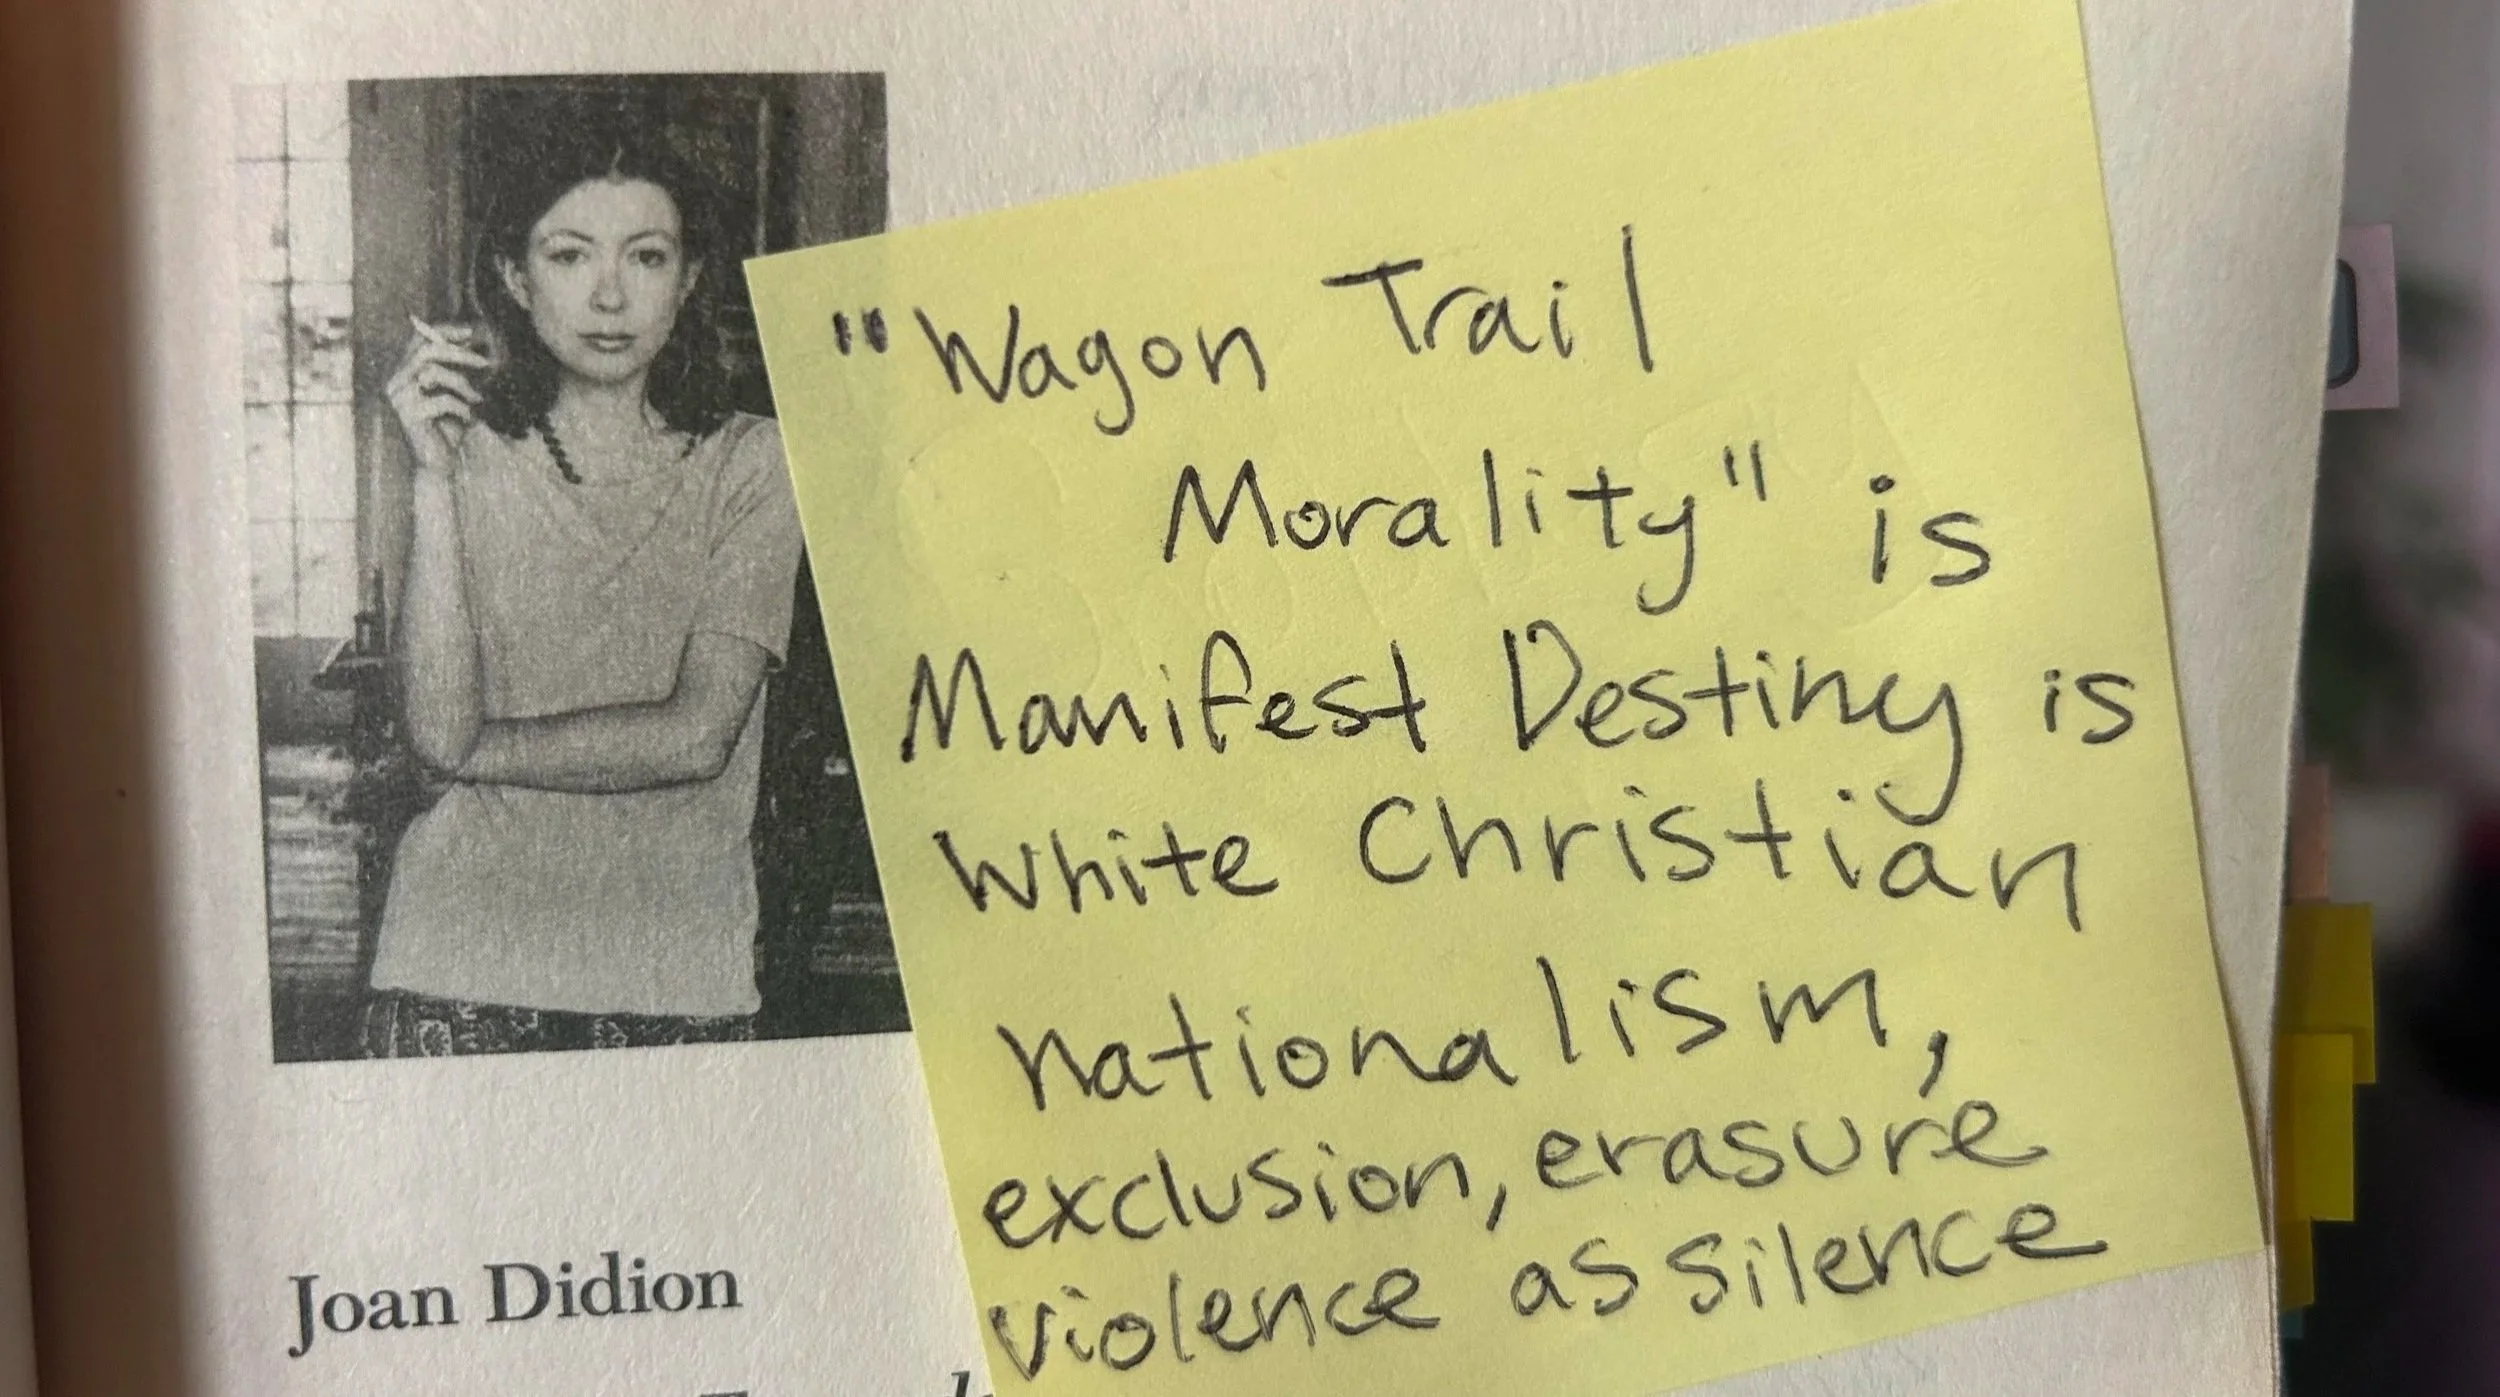 "Wagon Trail
Morality" is
Manifest Destiny is
White Christian
nationalism,
exclusion, erasure
violence as silence
Joan Didion